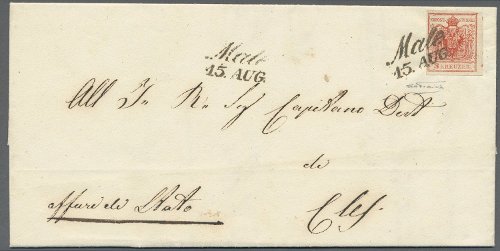 Malè
15. AUG.
Malè
15. AUG.
3 KREUZER
All I. R. Sig Capitano Dist
di
affari di Stato
Cles.